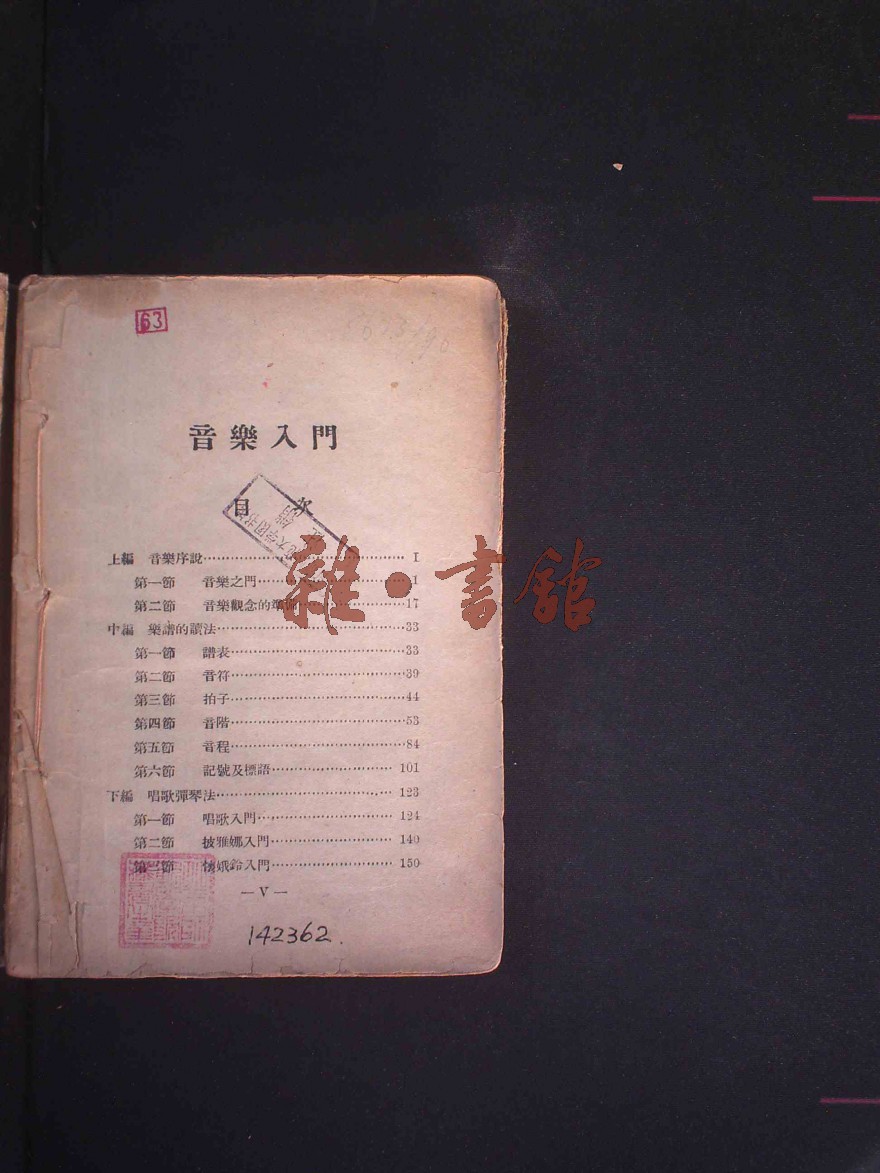 63
音樂入門
目次
上編 音樂序說 1
第一節 音樂之門 1
第二節 音樂觀念的準備 17
中編 樂譜的讀法 33
第一節 譜表 33
第二節 音符 39
第三節 拍子 44
第四節 音階 53
第五節 音程 84
第六節 記號及標語 101
下編 唱歌彈琴法 123
第一節 唱歌入門 124
第二節 披雅娜入門 140
第三節 懷娥鈴入門 150
—V—
142362.
雜·書館